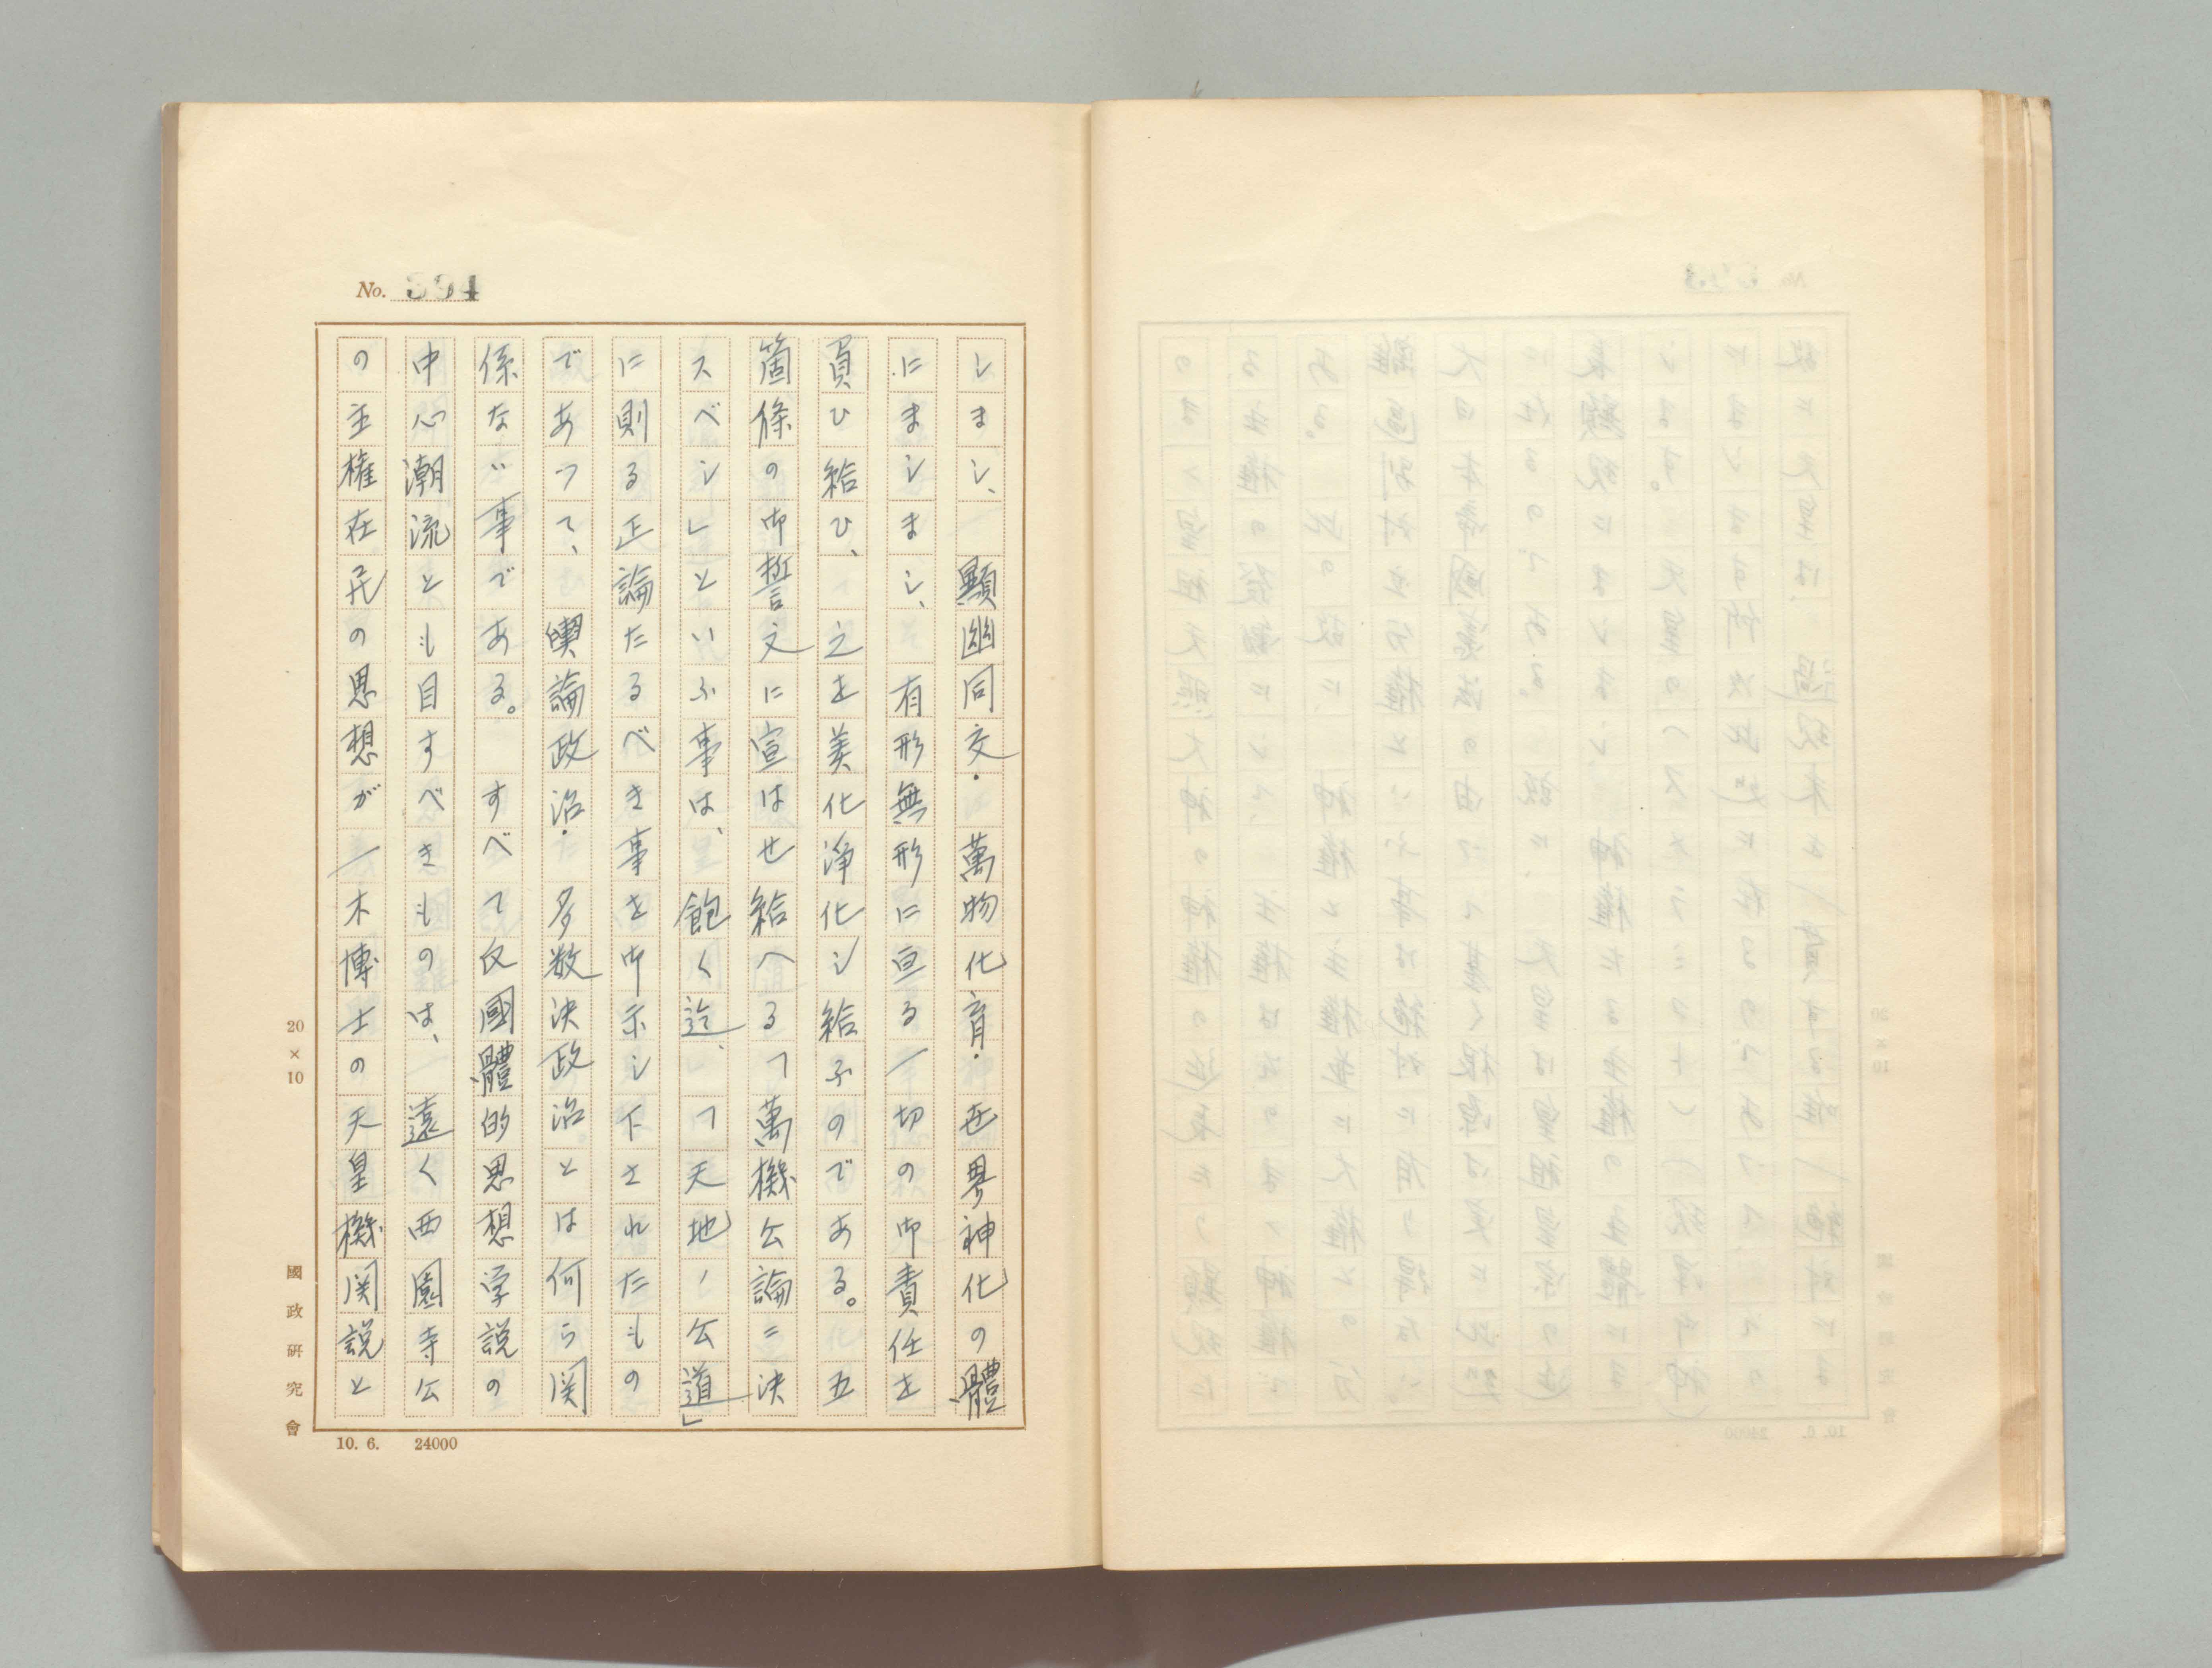 No. 394
しまし、顯幽同交・萬物化育・世界神化の體
にましまし、有形無形に亘る一切の御責任を
負ひ給ひ、之を美化淨化し給ふのである。五
箇條の御誓文に宣はせ給へる「萬機公論ニ決
スベシ」といふ事は、飽く迄、「天地ノ公道」
に則る正論たるべき事を御示し下されたもの
であつて、輿論政治・多数決政治とは何ら関
係ない事である。すべて反國體的思想学説の
中心潮流とも目すべきものは、遠く西園寺公
の主権在民の思想が一木博士の天皇機関説と
20×10
國政研究會
10. 6. 24000